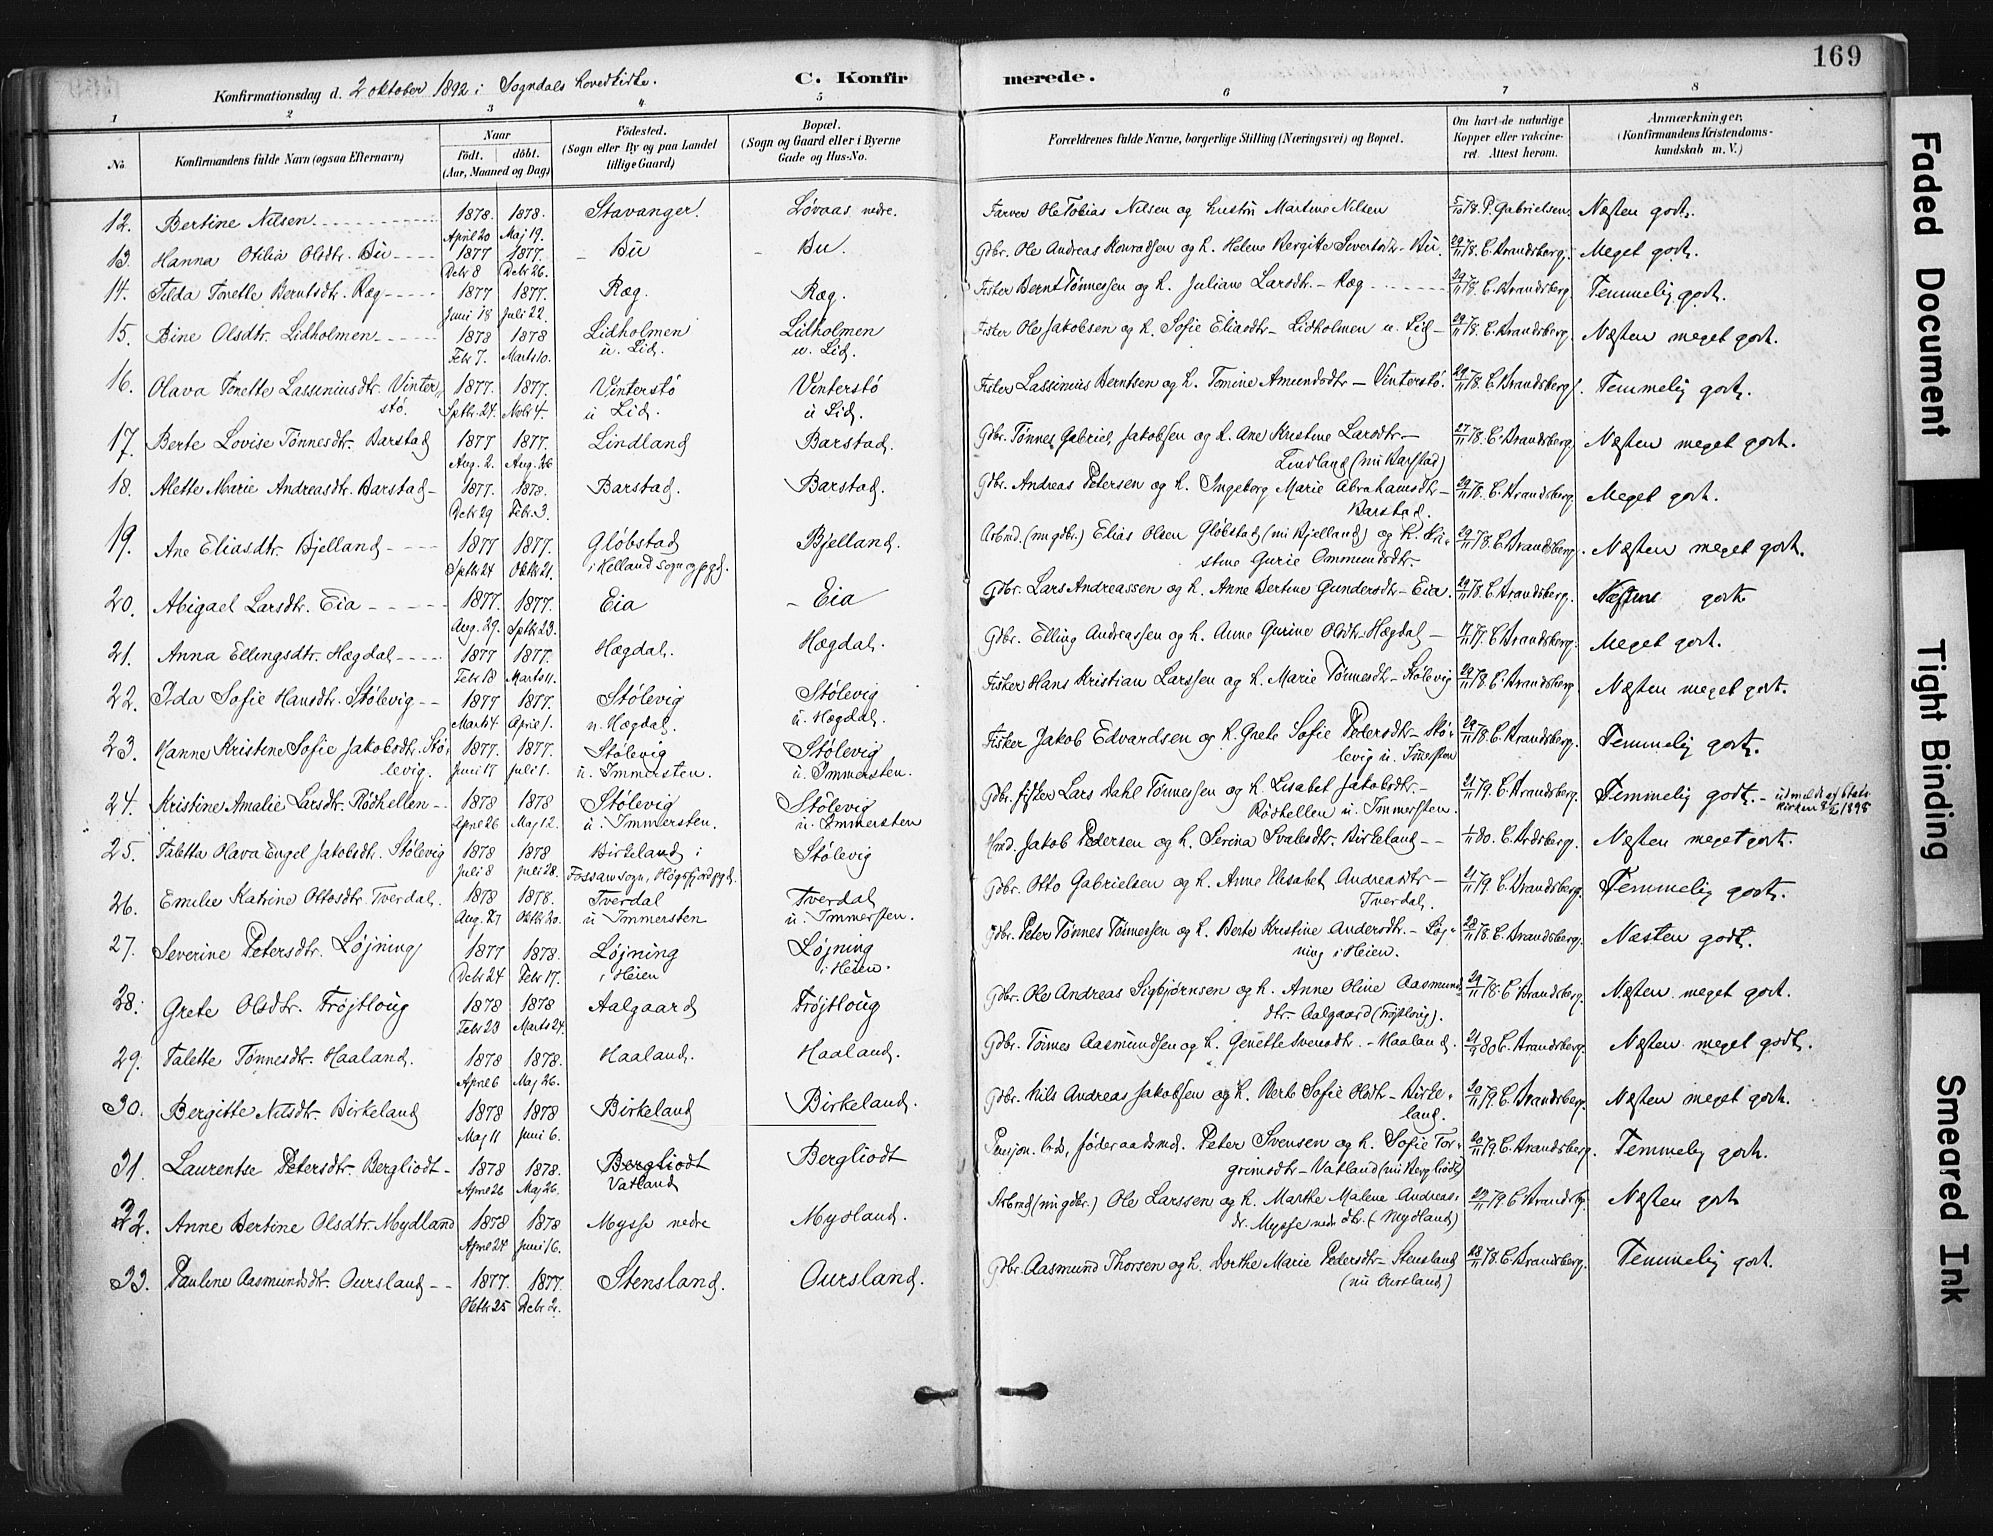 169
Konfirmationsdag d. 2 oktober 1892 i Sogndals hovedkirke.
C. Konfirmerede.
1 2 3 4 5 6 7 8
No. Konfirmandens fulde Navn (ogsaa Efternavn) Naar født. døbt. (Aar, Maaned og Dag) Fødested. (Sogn eller By og paa Landet tillige Gaard) Bopæl. (Sogn og Gaard eller i Byerne Gade og Hus-No. Forældrenes fulde Navne, borgerlige Stilling (Næringsvei) og Bopæl. Om havt de naturlige Kopper eller vakcineret. Attest herom. Anmerkninger. (Konfirmandens Kristendomskundskab m. V.)
12. Bertine Nilsen 1878. April 20 1878. Maj 19. Stavanger. Løvaas nedre. Farver Ole Tobias Nilsen og hustru Martine Nilsen 5/10 78. P. Gabrielsen. Næsten godt.
13. Hanna Otilia Olsdtr. Bu 1877 Debr 8 1877. Debr 26. Bu Bu. Gdbr. Ole Andreas Konradsen og h. Helene Bergitte Sivertsdtr - Bu. 29/11 78. E. Strandsberg. Meget godt.
14. Tilda Tonette Berntsdtr. Ræg 1877 Juni 18 1877. Juli 22. Ræg. Ræg. Fisker Bernt Tønnessen og h. Juliane Larsdtr. - Ræg 29/11 78. E. Strandsberg. Temmelig godt.
15. Bine Olsdtr. Lidholmen 1878 Febr 7. 1878 Marts 10. Lidholmen u. Lid. Lidholmen u. Lid. Fisker Ole Jakobsen og h. Sofie Eliasdtr - Lidholmen u. Lid - 29/11 78. E. Strandsberg. Næsten meget godt.
16. Olava Tonette Lassiniusdtr. Vinterstø. 1877. Sptbr 24. 1877. Nobr 4. Vinterstø u Lid. Vinterstø u Lid. Fisker Lassinius Berntsen og h. Tomine Amundsdtr - Vinterstø. 29/11 78. E. Strandsberg. Temmelig godt.
17. Berte Lovise Tønnesdtr. Barstad 1877 Aug. 2. 1877. Aug. 26 Lindland Barstad. Gdbr. Tønnes Gabriel Jakobsen og h. Ane Kristine Larsdtr - Lindland (nu Barstad) 27/11 78. E. Strandsberg. Næsten meget godt.
18. Alette Marie Andreasdtr. Barstad - 1877. Debr 29 1878. Febr. 3. Barstad. Barstad. Gdbr. Andreas Petersen og h. Ingeborg Marie Abrahamsdtr - Barstad. 29/11 78. E. Strandsberg. Meget godt.
19. Ane Eliasdtr. Bjelland 1877 Sptbr 24 1877. Oktbr 21. Gløbstad i Helland sogn og pgd. Bjelland. Arbmd. (nu gdbr.) Elias Olsen Gløbstad (nu Bjelland) og h. Kristine Gurie Ommundsdtr. 29/11 78. E. Strandsberg. Næsten meget godt.
20. Abigael Larsdtr. Eia 1877. Aug. 29. 1877. Sptbr 23. Eia Eia Gdbr. Lars Andreassen og h. Anne Bertine Gundersdtr - Eia. 29/11 78. E. Strandsberg. Næsten godt.
21. Anna Ellingsdtr. Hægdal 1877 Febr 18 1877. Marts 11. Hægdal. Hægdal. Gdbr. Elling Andreassen og h. Anne Gurine Olsdtr - Hægdal - 17/11 77. E. Strandsberg. Meget godt.
22. Ida Sofie Hansdtr. Stølevig 1877 Marts 4 1877. April 1. Stølevig u. Hægdal. Stølevig u. Hægdal. Fisker Hans Kristian Larssen og h. Marie Tønnesdtr - Stølevig 29/11 78. E. Strandsberg. Næsten meget godt.
23. Hanne Kristine Sofie Jakobsdtr. Stølevig. 1877. Juni 17 1877. Juli 1. Stølevig u. Immersten. Stølevig u. Immersten. Fisker Jakob Edvardsen og h. Grete Sofie Pedersdtr - Stølevig u. Immersten 29/11 78. E. Strandsberg. Temmelig godt.
24. Kristine Amalie Larsdtr. Rødhellen - 1878 April 26 1878 Maj 12. Stølevig u. Immersten. Stølevig u. Immersten Gdbr. fisker Lars Dahl Tønnessen og h. Lisabet Jakobsdtr. - Rødhellen u. Immersten. 21/11 79. E. Strandsberg. Temmelig godt. - udmeldt af Statskirken 1898
25. Taletta Olava Engel Jakobsdtr. Stølevig 1878 Juli 8 1878 Juli 28. Birkeland i Fossan sogn, Høgsfjord pgd. Stølevig Hmd. Jakob Pedersen og h. Serina Svalesdtr. Birkeland - 80. E. Strandsberg. Næsten meget godt.
26. Emilie Katrine Ottosdtr. Tverdal. 1878 Aug. 27 1878. Oktbr 20. Tverdal u Immersten Tverdal u. Immersten. Gdbr. Otto Gabrielsen og h. Anne Elisabet Andreasdtr - Tverdal. 21/11 79. E. Strandsberg. Temmelig godt.
27. Severine Petersdtr. Løjning 1877 Debr 24 1878. Febr 17. Løjning i Heien Løjning i Heien. Gdbr. Peter Tønnes Tønnessen og h. Berte Kristine Andersdtr. - Løjning i Heien. 28/11 78. E. Strandsberg. Næsten godt.
28. Grete Olsdtr. Frøjtloug 1878 Febr 23 1878 Marts 24. Aalgaard Frøjtloug Gdbr. Ole Andreas Sigbjørnsen og h. Anne Oline Aasmundsdtr - Aalgaard (Frøjtloug). 29/11 78. E. Strandsberg. Næsten meget godt.
29. Talette Tønnesdtr. Haaland. 1878 April 6 1878. Maj 26. Haaland. Haaland. Gdbr. Tønnes Aasmundsen og h. Genette Svensdtr. - Haaland. 80 E. Strandsberg. Næsten meget godt.
30. Bergitte Nilsdtr. Birkeland 1878 Maj 11 1878 Juni 6. Birkeland Birkeland. Gdbr. Nils Andreas Jakobsen og h. Berte Sofie Olsdtr - Birkeland. 20/11 79. E. Strandsberg. Næsten meget godt.
31. Laurentse Petersdtr. Bergliodt - 1878 April 26 1878. Maj 26. Bergliodt Vatland Bergliodt føderaadsmd. Peter Svensen og h. Sofie Torgrimsdtr - Vatland (nu Bergliodt) 20/11 79. E. Strandsberg. Temmelig godt.
32. Anne Bertine Olsdtr. Mydland 1878 April 24 1878 Juni 16. Mysse nedre Mydland. Arbmd (nu gdbr.) Ole Larssen og h. Marthe Malene Andreasdtr. Mysse nedre (Mydland) 79 E. Strandsbg. Næsten godt
33. Pauline Aasmundsdtr. Oursland 1877. Oktbr 25 1877. Debr 2. Stensland. Oursland. Gdbr. Aasmund Thorsen og h. Dorthe Marie Pedersdtr - Stensland (nu Oursland) 28/11 78. E. Strandsberg. Temmelig godt.
Faded Document
Tight Binding
Smeared Ink